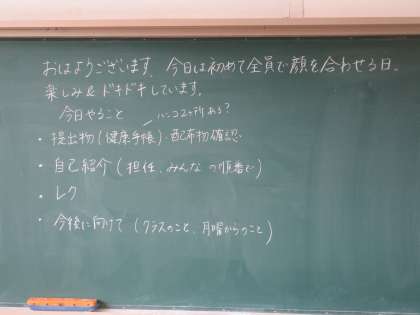 おはようございます。今日は初めて全員で顔を合わせる日。
楽しみ&ドキドキしています。
今日やること
ハンコ2ヶ所ある?
・提出物(健康手帳)・配布物確認
・自己紹介(担任、みんなの順番で)
・レク
・今後に向けて(クラスのこと、月曜からのこと)